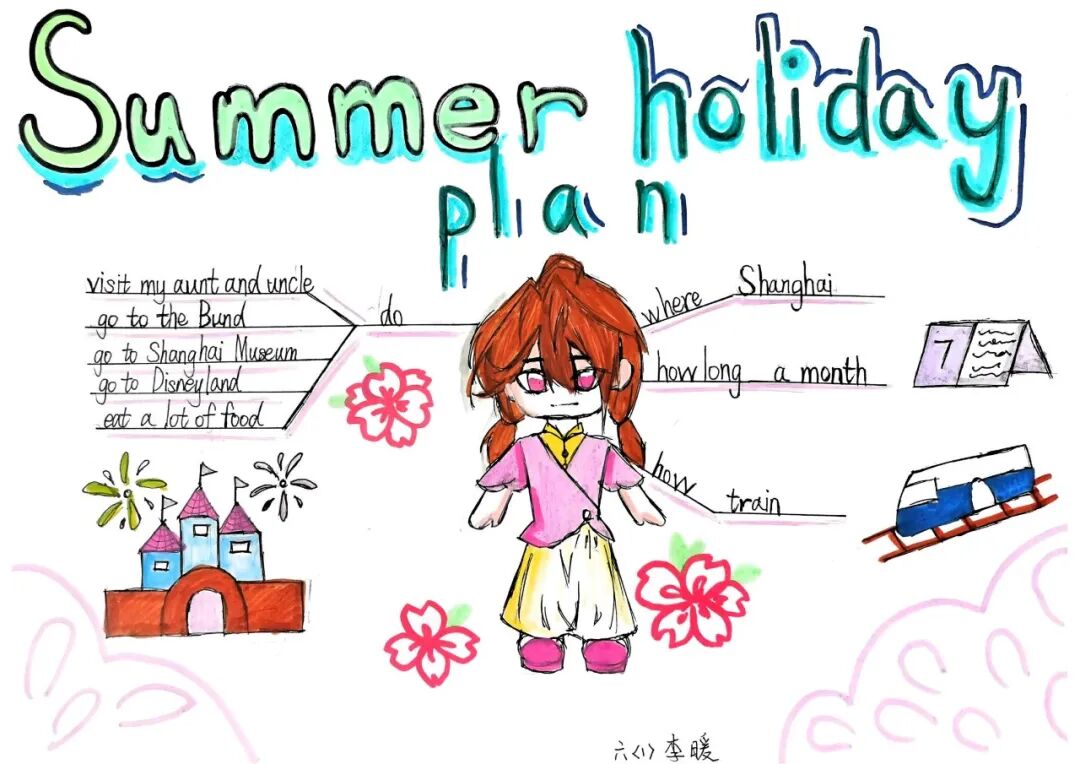 Summer holiday
plan
do
visit my aunt and uncle
go to the Bund
go to Shanghai Museum
go to Disneyland
eat a lot of food
where
Shanghai
how long
a month
7
how
train
六(1) 李暖